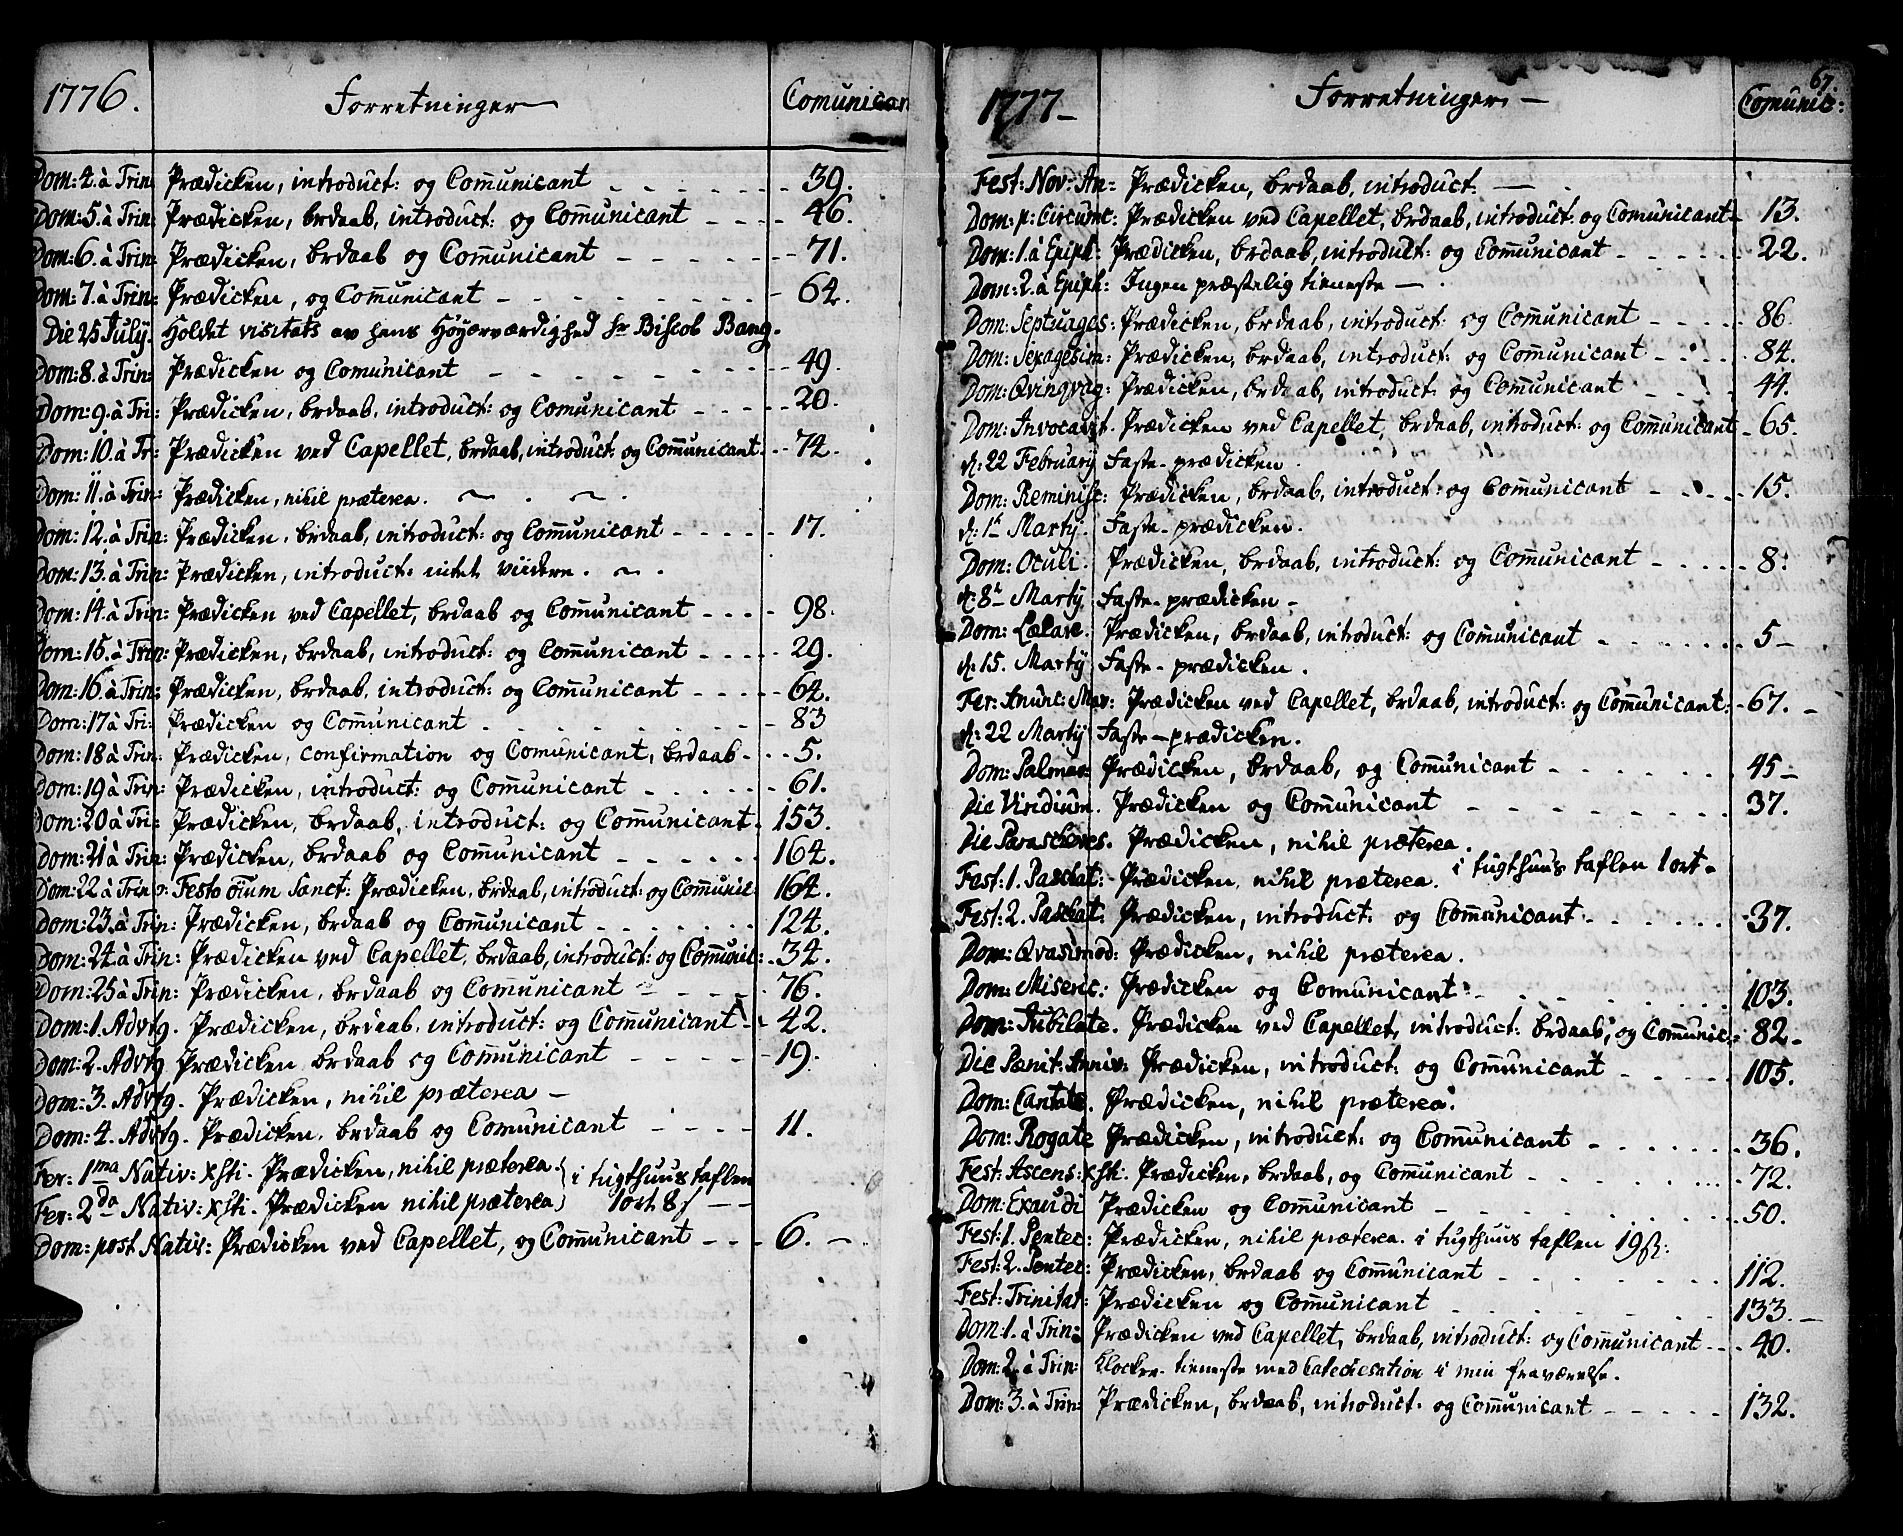 1776. Forretninger Comunican
Dom: 4. à Trin: Prædicken, introduct: og Com̄unicant 39.
Dom: 5. à Trin: Prædicken, brdaab, introduct: og Com̄unicant 46.
Dom: 6. à Trin: Prædicken, brdaab og Com̄unicant 71.
Dom: 7. à Trin: Prædicken, og Com̄unicant 64.
Die 25 July. Holdet visitats av hens Höyærværdighed Hr Biscob Bang.
Dom: 8. à Trin: Prædicken og Comunicant 49.
Dom: 9. à Tri: Prædicken, brdaab, introduct: og Comunicant 20.
Dom: 10. à Tr: Prædicken ved Capellet, brdaab, introduct: og Com̄unicant. 74.
Dom: 11. à Trin: Prædicken, nihil præterea.
Dom: 12. à Trin: Prædicken, brdaab, introduct: og Com̄unicant 17.
Dom: 13. à Trin: Prædicken, introduct: intet viidere.
Dom: 14. à Trin: Prædicken ved Capellet, brdaab og Com̄unicant 98.
Dom: 15. à Trin: Prædicken, brdaab, introduct: og Com̄unicant 29.
Dom: 16. à Trin: Prædicken, brdaab, introduct: og Com̄unicant 64.
Dom: 17 à Tri: Prædicken og Com̄unicant 83
Dom: 18 à Trin: Prædicken, confirmation og Com̄unicant, brdaab 5.
Dom: 19 à Trin: Prædicken, introduct: og Com̄unicant 61.
Dom: 20 à Tri: Prædicken, brdaab, introduct: og Com̄unicant 153.
Dom: 21 à Trin: Prædicken, brdaab og Com̄unicant 164.
Dom: 22 à Trin: Festo om̄ium Sanct: Prædicken, brdaab, introduct: og Com̄unic: 164.
Dom: 23. à Trin: Prædicken, brdaab og Com̄unicant 124.
Dom: 24 à Trin: Prædicken ved Capellet, brdaab, introduct: og Com̄unic: 34.
Dom: 25 à Trin: Prædicken, brdaab og Com̄unicant 76.
Dom: 1. Advtg. Prædicken, brdaab, introduct: og Com̄unicant 42.
Dom: 2. Advtg Prædicken brdaab og Com̄unicant 19.
Dom: 3. Advtg. Prædicken, nihil præterea
Dom: 4. Advtg. Prædicken, brdaab og Com̄unicant 11.
Fer: 1ma Nativ: Xsti. Prædicken, nihil præterea. i tugthuus taflen
Fer: 2da Nativ: Xsti. Prædicken nihil præterea 1 ort 8 s
Dom: post Nativ: Prædicken ved Capellet, og Com̄unicant 6.
67.
1777 Forretninger Comunic:
Fest: Nov: An: Prædicken, brdaab, introduct:
Dom: p: Circumc: Prædicken ved Capellet, brdaab, introduct: og Com̄unicant 13.
Dom: 1. à Epiph: Prædicken, brdaab, introduct: og Com̄unicant 22.
Dom: 2. à Epiph: Ingen præstelig tieneste
Dom: Septuages: Prædicken, brdaab, introduct: og Com̄unicant 86
Dom: Sexagesim: Prædicken, brdaab, introduct: og Com̄unicant 84.
Dom: Qvinqvag: Prædicken, brdaab, introduct: og Com̄unicant 44.
Dom: Invocavit. Prædicken ved Capellet, brdaab, introduct: og Com̄unicant 65.
d: 22 February Faste-prædicken.
Dom: Reminisc: Prædicken, brdaab, introduct: og Com̄unicant 15.
d: 1t Martij. Faste-prædicken.
Dom: Oculi. Prædicken, brdaab, introduct: og Com̄unicant 8:
d: 8t Martij Faste-prædicken
Dom: Lætare. Prædicken, brdaab, introduct: og Com̄unicant 5
d: 15. Martij Faste-prædicken.
Fer: Anunc: Mar: Prædicken ved Capellet, brdaab, introduct: og Com̄unicant: 67.
d: 22 Martij Faste-prædicken.
Dom: Palmar: Prædicken, brdaab, og Com̄unicant 45
Die Viridium. Prædicken og Com̄unicant 37.
Die Parasceves. Prædicken, nihil præterea.
Fest: 1. Paschat: Prædicken, nihil præterea. i tugthuus taflen 1 ort
Fest: 2. Paschat: Prædicken, introduct: og Com̄unicant 37.
Dom: Qvasimod: Prædicken, nihil præterea.
Dom: Miseric: Prædicken og Com̄unicant 103.
Dom: Jubilate. Prædicken ved Capellet, introduct: brdaab, og Com̄unic: 82
Die Pœnit: Anniv: Prædicken, introduct: og Com̄unicant 105.
Dom: Cantate. Prædicken, nihil præterea.
Dom: Rogate Prædicken, introduct: og Com̄unicant 36.
Fest: Ascens: Xsti. Prædicken, brdaab, og Com̄unicant 72.
Dom: Exaudi Prædicken og Com̄unicant 50.
Fest: 1. Pentec: Prædicken, nihil præterea. i tugthuus taflen 19 s:
Fest: 2. Pentec: Prædicken, brdaab og Com̄unicant 112.
Fest: Trinitat: Prædicken og Com̄unicant 133.
Dom: 1. à Trin: Prædicken ved Capellet, brdaab, introduct: og Com̄unicant 40.
Dom: 2. à Trin: Klocker-tieneste med Catechesation i min fraværelse.
Dom: 3. à Trin: Prædicken, brdaab, introduct: og Com̄unicant 132.